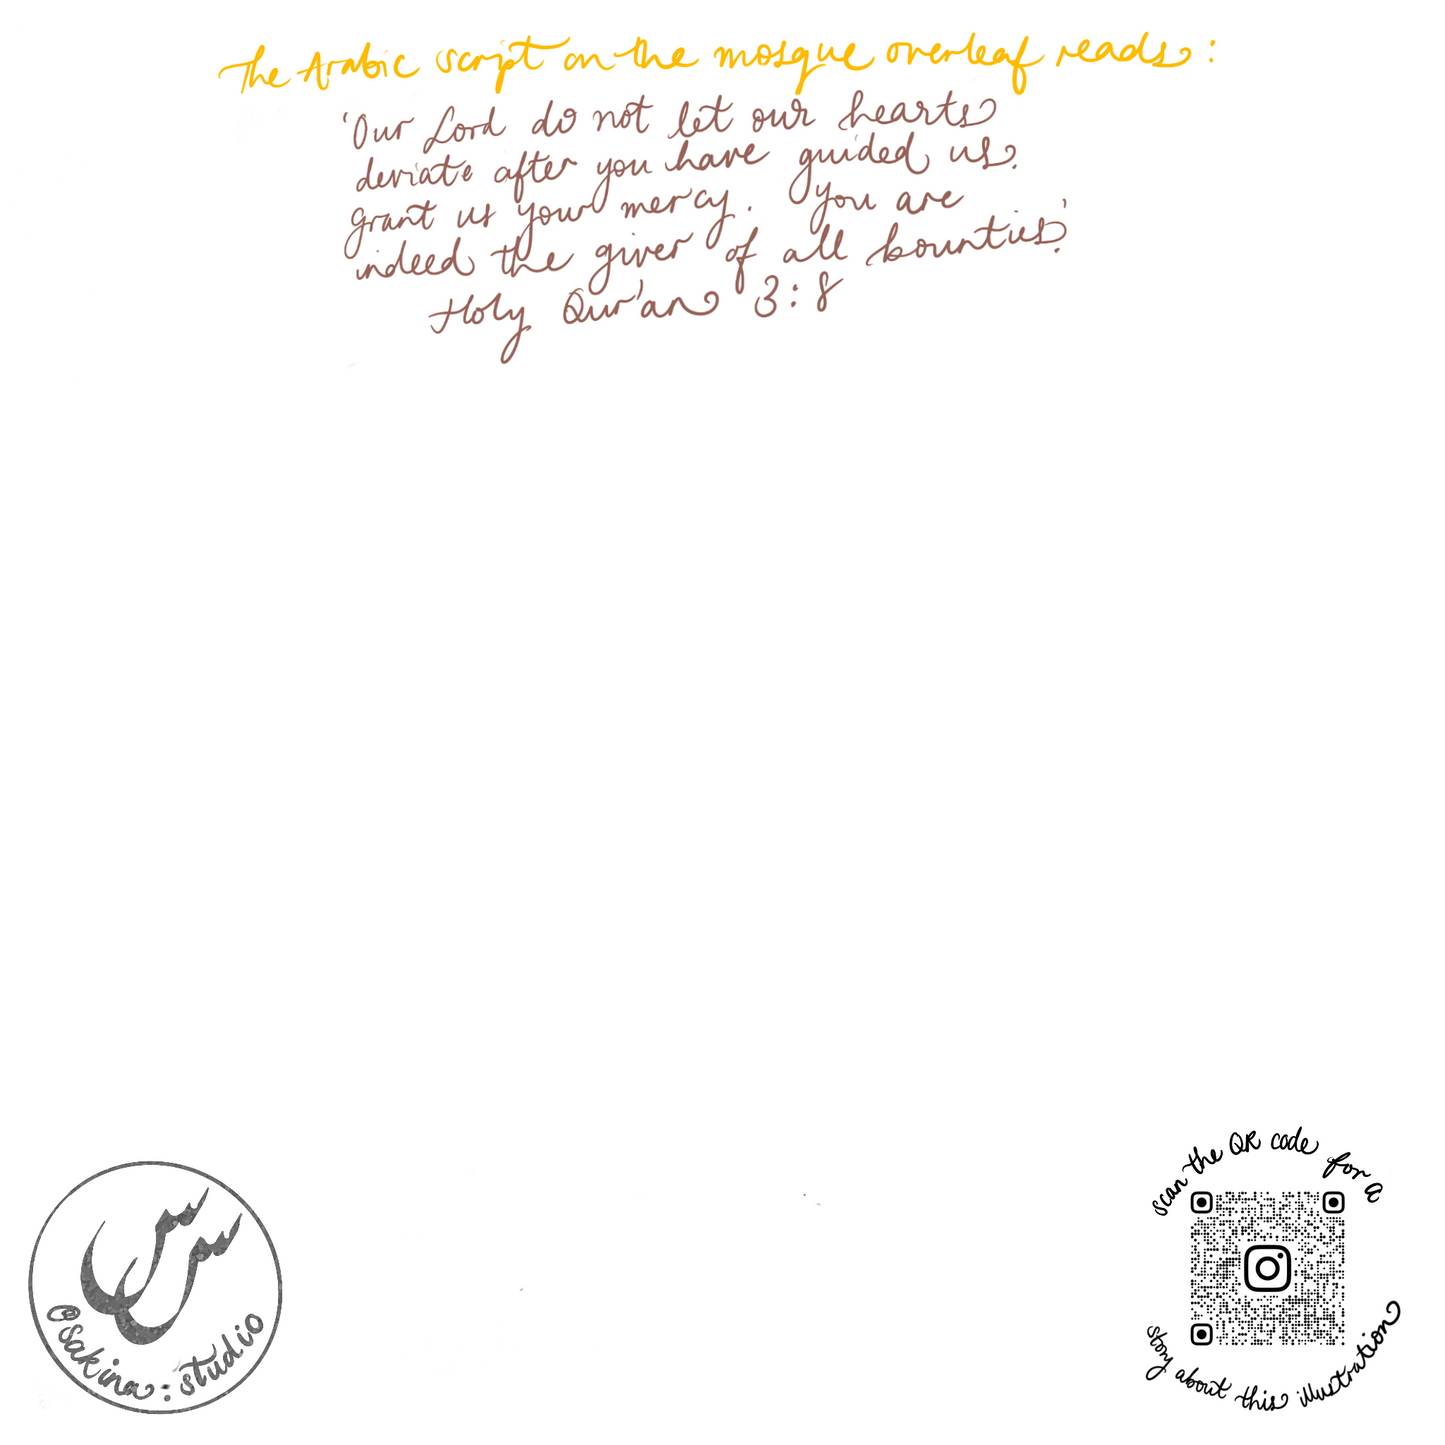 The Arabic script on the mosque overleaf reads:
'Our Lord do not let our hearts
deviate after you have guided us.
grant us your mercy. You are
indeed the giver of all bounties.'
Holy Qur'an 3:8
scan the QR code for a
story about this illustration
س س
@sakina:studio